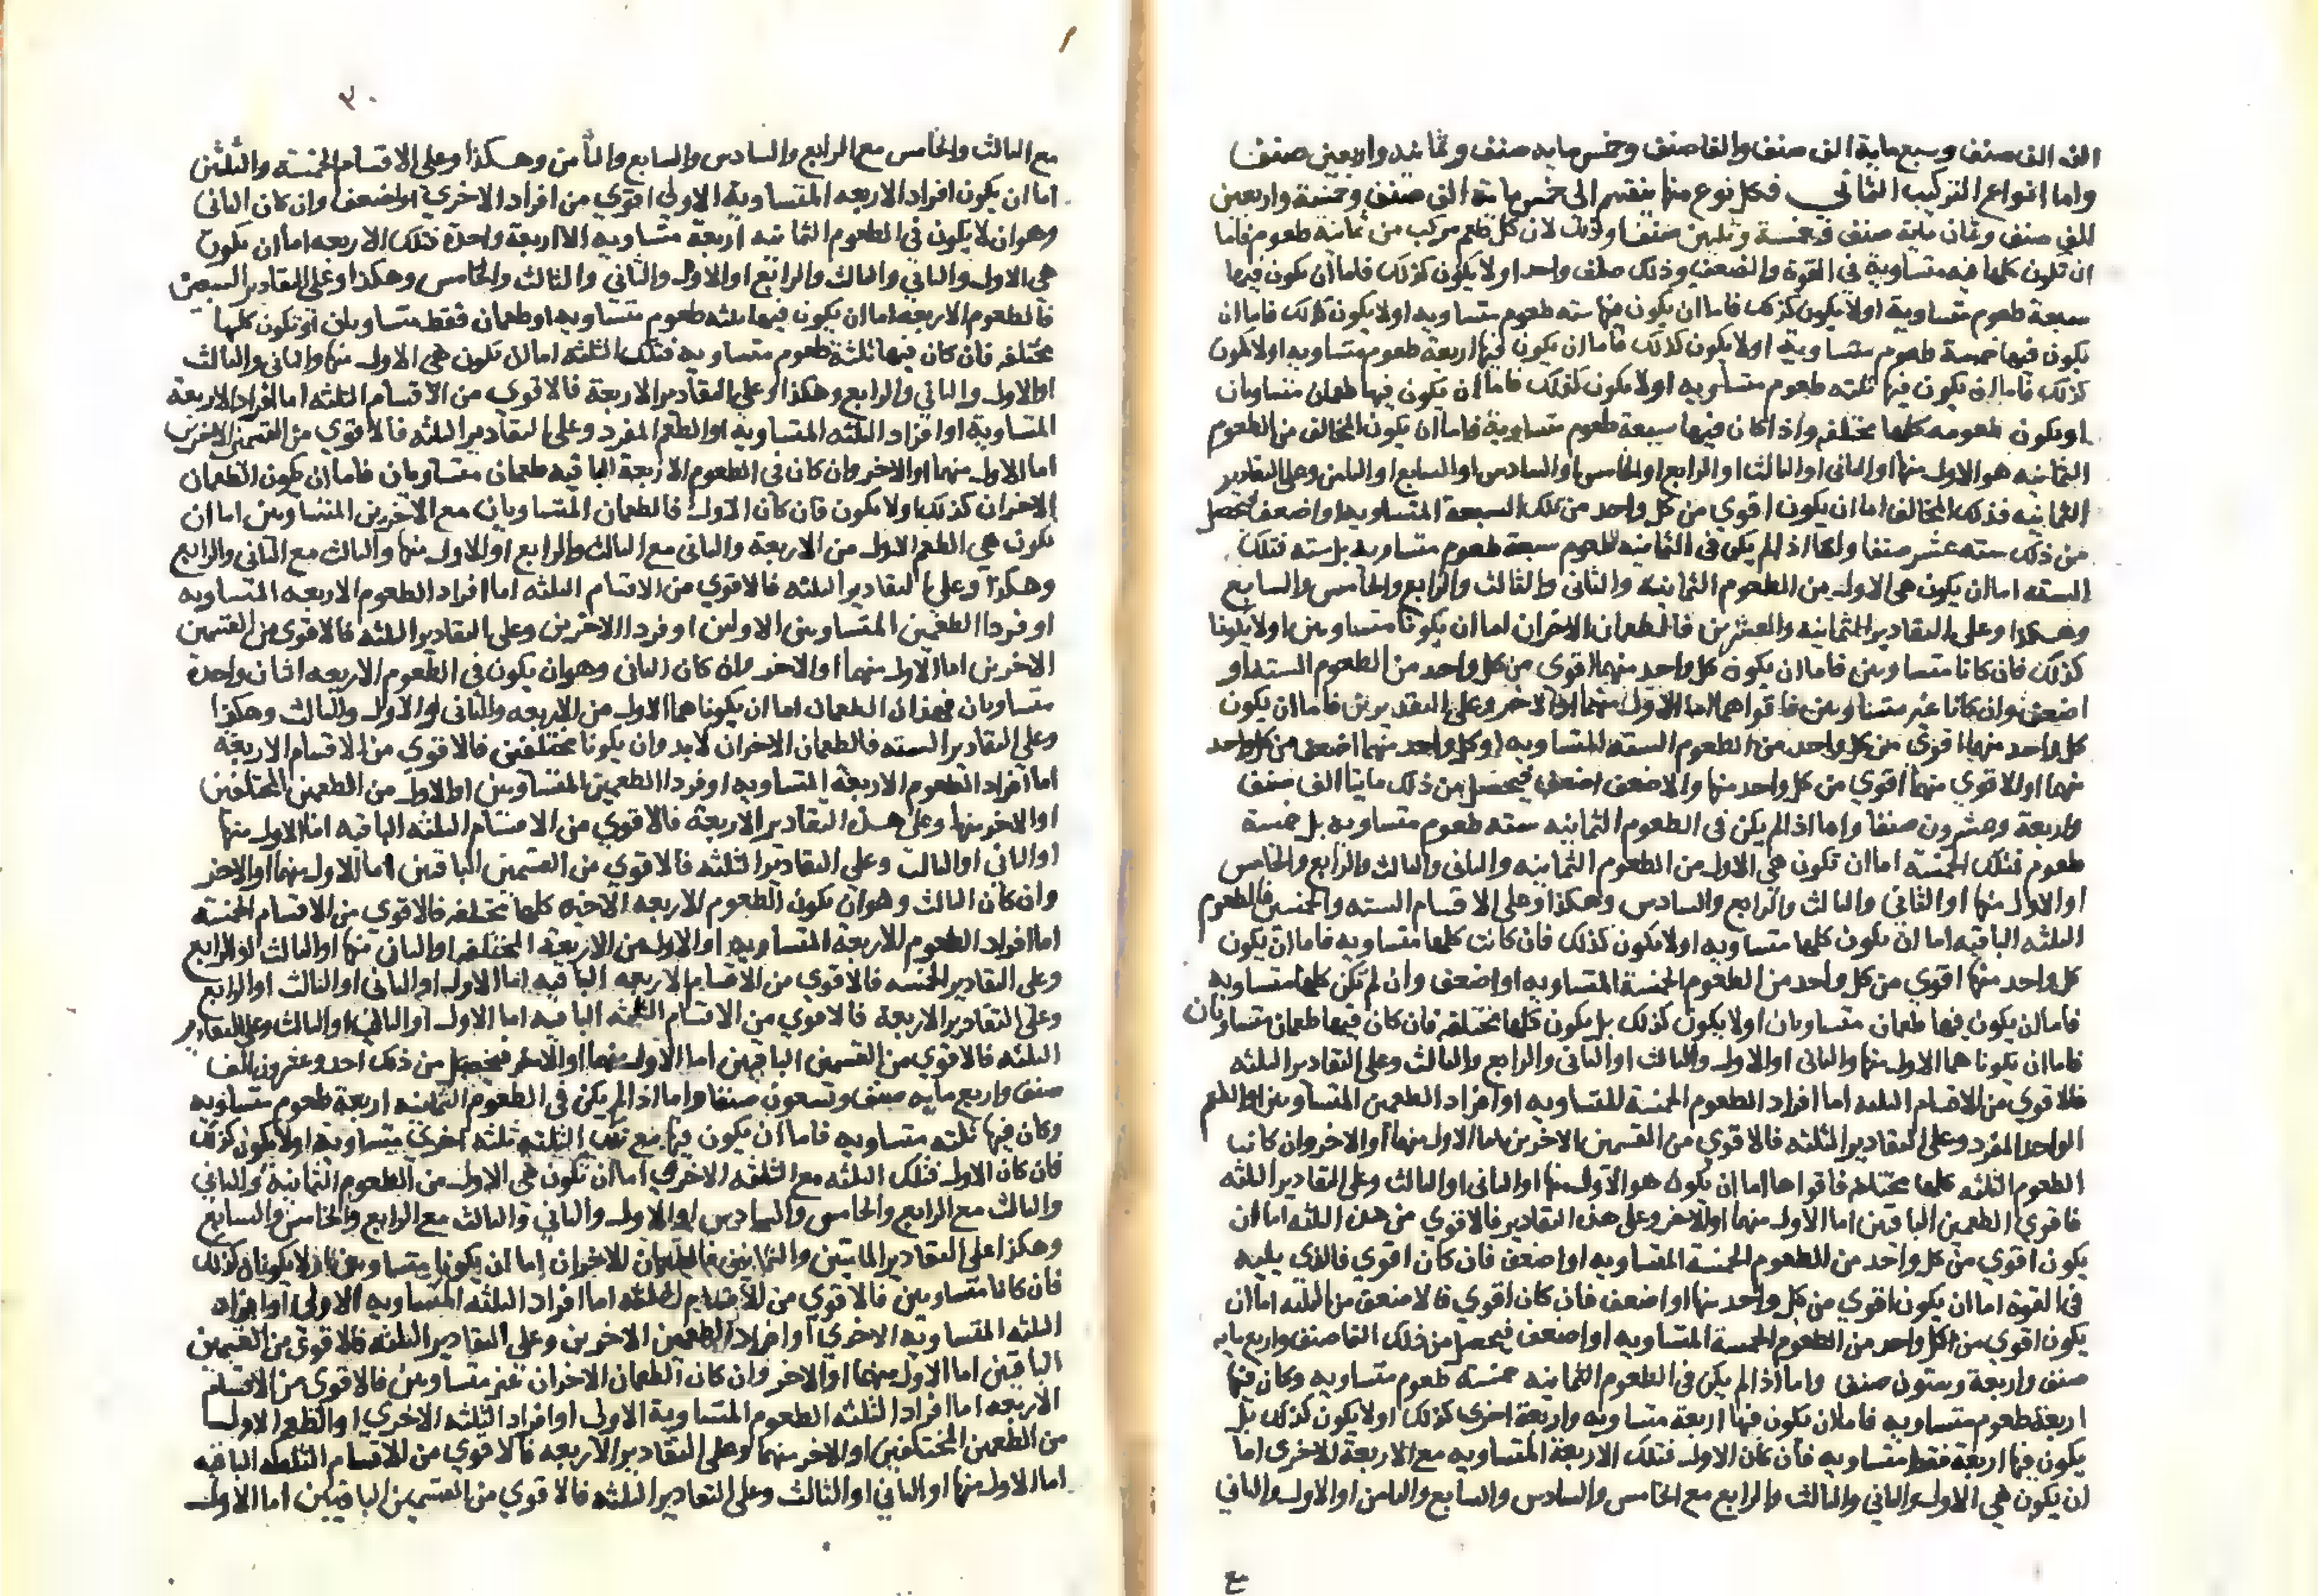 الف الف صنف وسبع ماية الف صنف والفا صنف وخمس مايه صنف وثمانيه واربعين صنفا
واما انواع التركيب الثماني فكل نوع منها ينقسم الى خمس ماية الف صنف وخمسة واربعين
الف صنف وثمان ماية صنف وخمسة وثلثين صنفا وذلك لان كل طعم مركب من ثمانيه طعوم فاما
ان تكون كلها فيه متساوية في القوة والضعف وذلك صنف واحد اولا يكون كذلك فاما ان يكون فيها
سبعة طعوم متساوية اولا يكون كذلك فاما ان يكون فيها سته طعوم متساويه اولا يكون كذلك فاما ان
يكون فيها خمسة طعوم متساوية اولا يكون كذلك فاما ان يكون فيها اربعة طعوم متساويه اولا يكون
كذلك فاما ان يكون فيها ثلثه طعوم متساويه اولا يكون كذلك فاما ان يكون فيها طعمان متساويان
او يكون طعومه كلها مختلفه واذا كان فيها سبعة طعوم متساوية فاما ان يكون المخالف من الطعوم
الثمانيه هو الاول منها او الثانى او الثالث او الرابع او الخامس او السادس او السابع او الثامن وعلى التقادير
الثمانيه فذلك المخالف اما ان يكون اقوي من كل واحد من تلك السبعة المتساويه او اضعف فيحصل
من ذلك سته عشر صنفا واما اذا لم يكن فى الثمانيه الطعوم سبعة طعوم متساويه بل سته فتلك
السته اما ان يكون هي الاول من الطعوم الثمانية والثانى والثالث والرابع والخامس والسابع
وهكذا وعلى التقادير الثمانيه والعشرين فالطعمان الاخران اما ان يكونا متساويين اولا يكونا
كذلك فان كانا متساويين فاما ان يكون كل واحد منهما اقوى من كل واحد من الطعوم السته او
اضعف وان كانا غير متساويين فاقواهما اما الاول منهما او الاخر وعلى التقديرين فاما ان يكون
كل واحد منهما اقوى من كل واحد من الطعوم السته المتساويه او كل واحد منهما اضعف من كل واحد
منها او الاقوي منهما اقوي من كل واحد منها والاضعف اضعف فيحصل من ذلك مايتا الف صنف
واربعة وعشرون صنفا واما اذا لم يكن فى الطعوم الثمانيه سته طعوم متساويه بل خمسة
طعوم فتلك الخمسة اما ان تكون هي الاول من الطعوم الثمانيه والثانى والثالث والرابع والخامس
او الاول منها او الثاني والثالث والرابع والسادس وهكذا وعلى الاقسام السته والخمسين فالطعوم
الثلثه الباقيه اما ان يكون كلها متساويه اولا يكون كذلك فان كانت كلها متساويه فاما ان يكون
كل واحد منها اقوي من كل واحد من الطعوم الخمسة المتساويه او اضعف وان لم تكن كلها متساويه
فاما ان يكون فيها طعمان متساويان اولا يكون كذلك بل يكون كلها مختلفه فان كان فيها طعمان متساويان
فاما ان يكونا هما الاول منها والثانى او الاول والثالث او الثانى والرابع والثالث وعلى التقادير الثلثه
فالاقوي من الاقسام الثلثه اما افراد الطعوم الخمسة المتساويه او افراد الطعمين المتساويين او الطعم
الواحد المفرد وعلى التقادير الثلثه فالاقوي من القسمين الاخرين اما الاول منهما او الاخر وان كانت
الطعوم الثلثه كلها مختلفه فاقواها اما ان يكون هو الاول منها او الثانى او الثالث وعلى التقادير الثلثه
فاقوي الطعمين الباقيين اما الاول منهما او الاخر وعلى هذه التقادير فالاقوي من هذه الثلثه اما ان
يكون اقوي من كل واحد من الطعوم الخمسة المتساويه او اضعف فان كان اقوي فالذي يليه
فى القوة اما ان يكون اقوي من كل واحد منها او اضعف فان كان اقوي فالاضعف من الثلثه اما ان
يكون اقوي من كل واحد من الطعوم الخمسة المتساويه او اضعف فيحصل من ذلك الفا صنف واربع مايه
صنف واربعة وستون صنفا واما اذا لم يكن فى الطعوم الثمانيه خمسة طعوم متساويه وكان فيها
اربعة طعوم متساويه فاما ان يكون فيها اربعة متساويه واربعة اخرى كذلك اولا يكون كذلك بل
يكون فيها اربعة فقط متساويه فان كان الاول فتلك الاربعة المتساويه مع الاربعة الاخرى اما
ان يكون هي الاول والثاني والثالث والرابع مع الخامس والسادس والسابع والثامن او الاول والثاني
ع
٣٠
مع الثالث والخامس مع الرابع والسادس والسابع والثامن وهكذا وعلى الاقسام الخمسة والثلثين
اما ان يكون افراد الاربعه المتساوية الاولي اقوي من افراد الاخري او اضعف وان كان الثاني
وهو ان لا يكون في الطعوم الثمانيه اربعة متساويه الا اربعة واحدة فتلك الاربعه اما ان يكون
هي الاول والثاني والثالث والرابع او الاول والثاني والثالث والخامس وهكذا وعلى التقادير السبعين
فالطعوم الاربعه اما ان يكون فيها ثلثه طعوم متساويه او طعمان فقط متساويان او تكون كلها
مختلفه فان كان فيها ثلثة طعوم متساويه فتلك الثلثه اما ان تكون هي الاول منها والثانى والثالث
او الاول والثاني والرابع وهكذا وعلى التقادير الاربعة فالاقوى من الاقسام الثلثه اما افراد الاربعة
المتساوية او افراد الثلثه المتساويه او الطعم المفرد وعلى التقادير الثلثه فالاقوي من القسمين الاخرين
اما الاول منهما او الاخر وان كان فى الطعوم الاربعة الباقيه طعمان متساويان فاما ان يكون الطعمان
الاخران كذلك اولا يكون فان كان الاول فالطعمان المتساويان مع الاخرين المتساويين اما ان
يكون هي الطعم الاول من الاربعة والثانى مع الثالث والرابع او الاول منها والثالث مع الثانى والرابع
وهكذا وعلى التقادير الثلثه فالاقوي من الاقسام الثلثه اما افراد الطعوم الاربعه المتساويه
او فردا الطعمين المتساويين الاولين او فردا الاخرين وعلى التقادير الثلثه فالاقوى من القسمين
الاخرين اما الاول منهما او الاخر وان كان الثانى وهو ان يكون فى الطعوم الاربعه اثنان واحدة
متساويان فهذان الطعمان اما ان يكونا هما الاول من الاربعه والثانى او الاول والثالث وهكذا
وعلى التقادير السته فالطعمان الاخران لابد وان يكونا مختلفين فالاقوي من الاقسام الاربعة
اما افراد الطعوم الاربعة المتساويه او فردا الطعمين المتساويين او الاول من الطعمين المختلفين
او الاخر منها وعلى هذه التقادير الاربعة فالاقوي من الاقسام الثلثه الباقيه اما الاول منها
او الثاني او الثالث وعلى التقادير الثلثه فالاقوي من القسمين الباقيين اما الاول منهما او الاخر
وان كان الثالث وهو ان يكون الطعوم الاربعه الاخيره كلها مختلفه فالاقوي من الاقسام الخمسة
اما افراد الطعوم الاربعة المتساويه او الاول من الاربعة المختلفه او الثانى منها او الثالث او الرابع
وعلى التقادير الخمسه فالاقوي من الاقسام الاربعه الباقيه اما الاول او الثانى او الثالث او الرابع
وعلى التقادير الاربعة فالاقوي من الاقسام الثلثه الباقيه اما الاول او الثاني او الثالث وعلى التقادير
الثلثه فالاقوي من القسمين الباقيين اما الاول منهما او الاخر فيحصل من ذلك احد وعشرون الف
صنف واربع مايه صنف وتسعون صنفا واما اذا لم يكن فى الطعوم الثمانيه اربعة طعوم متساويه
وكان فيها ثلثه متساويه فاما ان يكون فيها مع تلك الثلثه ثلثه اخري متساوية اولا يكون كذلك
فان كان الاول فتلك الثلثه مع الثلثه الاخري اما ان تكون هي الاول من الطعوم الثمانية والثاني
والثالث مع الرابع والخامس والسادس او الاول والثاني والثالث مع الرابع والخامس والسابع
وهكذا على التقادير المايتين والثمانين فالطعمان الاخران اما ان يكونا متساويين اولا يكونا كذلك
فان كانا متساويين فالاقوي من الاقسام الثلثه اما افراد الثلثه المتساويه الاولى او افراد
الثلثه المتساويه الاخري او افراد الطعمين الاخرين وعلى التقادير الثلثه فالاقوى من القسمين
الباقيين اما الاول منهما او الاخر وان كان الطعمان الاخران غير متساويين فالاقوى من الاقسام
الاربعه اما افراد الثلثه الطعوم المتساوية الاول او افراد الثلثه الاخري او الطعم الاول
من الطعمين المختلفين او الاخر منهما وعلى التقادير الاربعه فالاقوي من الاقسام الثلثه الباقيه
اما الاول منها او الثاني او الثالث وعلى التقادير الثلثه فالاقوي من القسمين الباقيين اما الاول